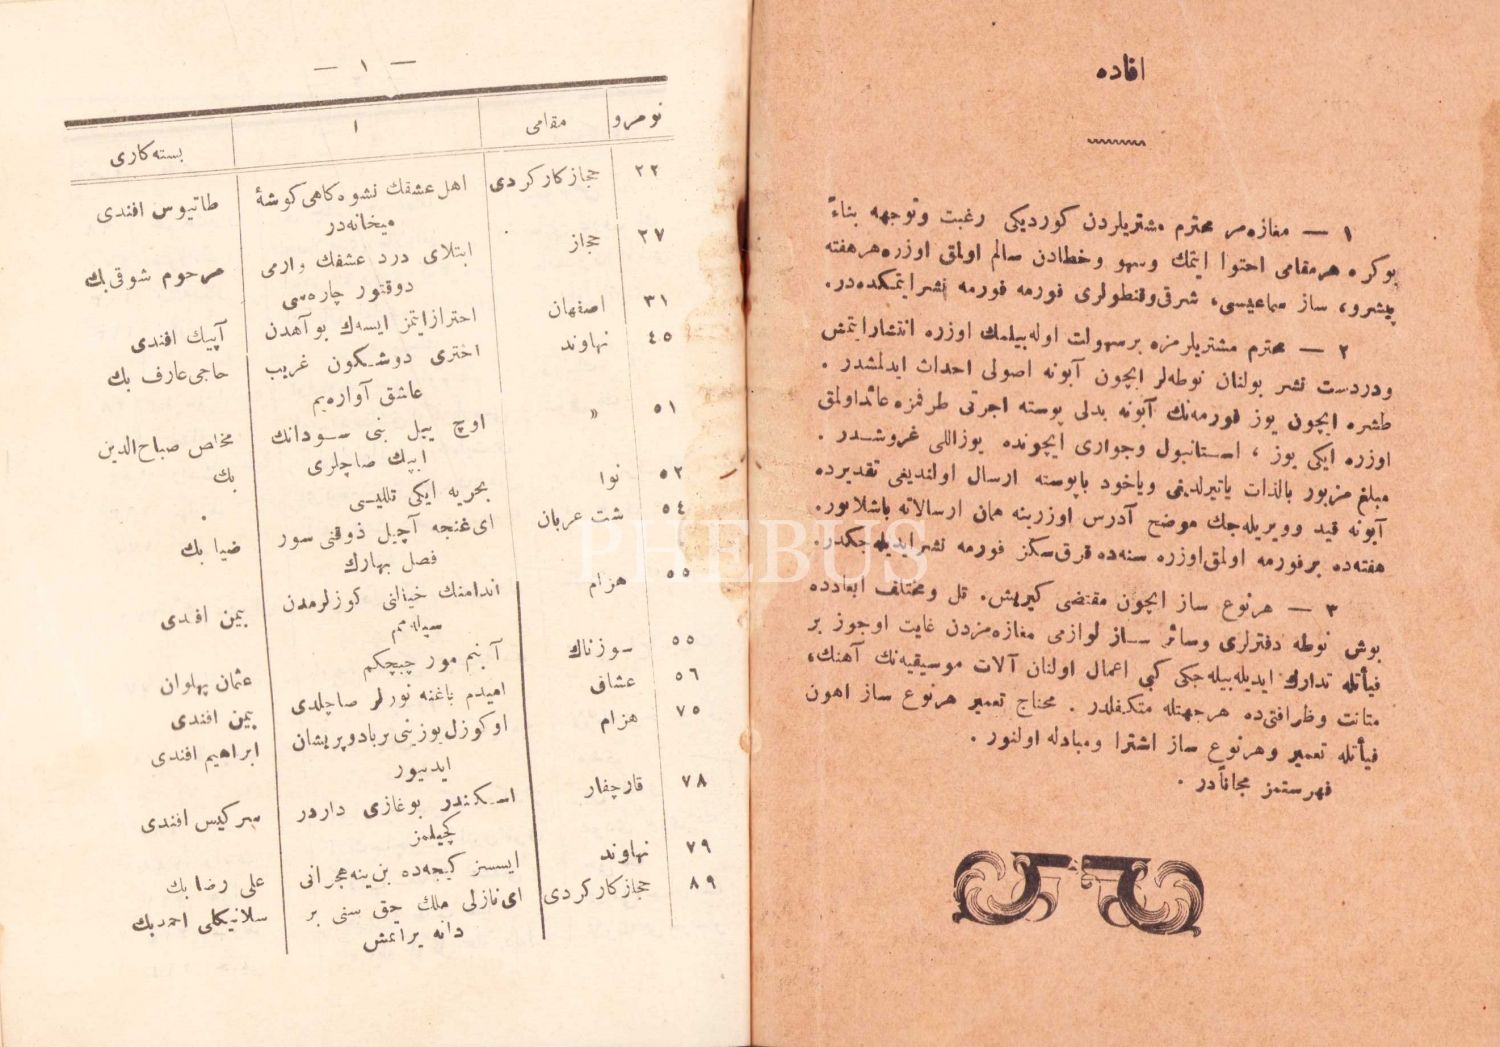 افاده
١ — مغازه‌مز محترم مشتریلردن كوردیكی رغبت وتوجهه بناءً
بوكره هرمقامی احتوا ایتمك وسهو وخطادن سالم اولمق اوزره هرهفته
پیشرو، ساز سماعیسی، شرقی‌وقنطولری فورمه فورمه نشرایتمكده‌در.
٢ — محترم مشتریلرمزه برسهولت اوله‌بیلمك اوزره انتشارایتمش
ودردست نشر بولنان نوطه‌لر ایچون آبونه اصولی احداث ایدلمشدر .
طشره ایچون یوز فورمه‌نك آبونه بدلی پوسته اجرتی طرفمزه عائداولمق
اوزره ایكی یوز ، استانبول وجواری ایچونده یوزاللی غروشدر .
مبلغ مزبور بالذات یاتیرلدیغی ویاخود باپوسته ارسال اولندیغی تقدیرده
آبونه قید وویریله‌جك موضح آدرس اوزرینه همان ارسالاته باشلانور.
هفته‌ده برفورمه اولمق‌اوزره سنه‌ده قرق‌سكز فورمه نشرایدیله‌جكدر.
٣ — هرنوع ساز ایچون مقتضی كیریش. تل ومختلف ابعادده
بوش نوطه دفترلری وسائر ساز لوازمی مغازه‌مزدن غایت اوجوز بر
فیأتله تدارك ایدیله‌بیله‌جكی كبی اعمال اولنان آلات موسیقیه‌نك آهنك،
متانت وظرافتی‌ده هرجهتله متكفلدر . محتاج تعمیر هرنوع ساز اهون
فیأتله تعمیر وهرنوع ساز اشترا ومبادله اولنور .
فهرستمز مجاناًدر .
— ١ —
نومرو مقامی ا بسته‌كاری
٢٢ حجازكاركردی اهل عشقك نشوه‌كاهی كوشۀ طاتیوس افندی
میخانه‌در
٢٧ حجاز ابتلای درد عشقك وارمی مرحوم شوقی‌بك
دوقتور چاره‌سی
٣١ اصفهان احترازایتمز ایسه‌ك بوآهدن آپیك افندی
٤٥ نهاوند اختری دوشكون غریب حاجی‌عارف بك
عاشق آواره‌یم
٥١ » اوچ ییل بنی سودانك مخلص صباح‌الدین
ایپك صاچلری بك
٥٢ نوا بحریه ایكی تللیسی
٥٤ شت عربان ای‌غنجه آچیل ذوقنی سور ضیا بك
فصل بهارك
٥٥ هزام اندامنك خیالنی كوزلرمدن یمن افندی
سیله‌مم
٥٥ سوزناك آ بنم مور چیچكم عثمان پهلوان
٥٦ عشاق امیدم باغنه نورلر صاچلدی یمن افندی
٧٥ هزام اوكوزل‌یوزینی بربادوپریشان ابراهیم افندی
ایدییور
٧٨ قارجغار اسكندر بوغازی داردر سركیس افندی
كچیلمز
٧٩ نهاوند ایسسز كیجه‌ده بن‌ینه‌هجرانی علی رضا بك
٨٩ حجازكاركردی ای‌نازلی ملك حق سنی بر سلانیكلی احمدبك
دانه یراتمش
PHEBUS